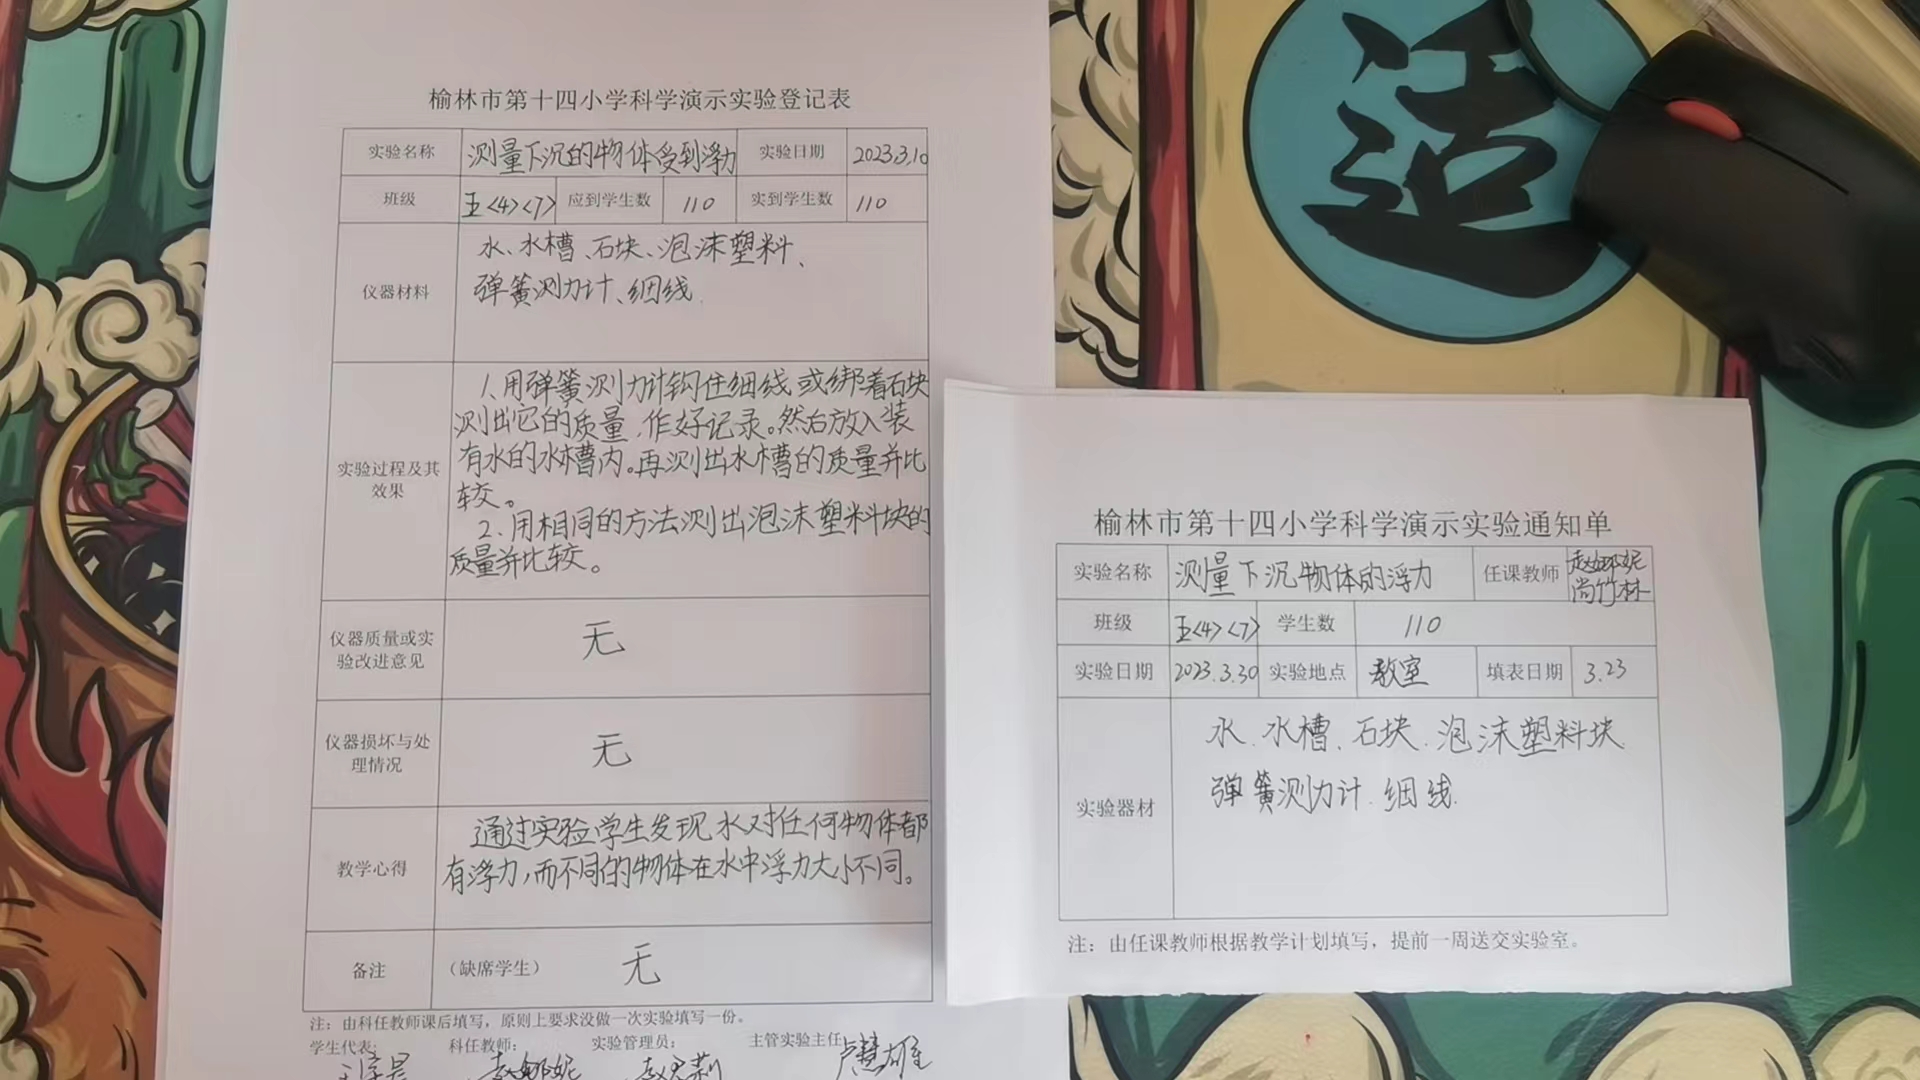 榆林市第十四小学科学演示实验登记表
实验名称 测量下沉的物体受到浮力 实验日期 2023.3.10
班级 五<4><7> 应到学生数 110 实到学生数 110
仪器材料
水、水槽、石块、泡沫塑料、
弹簧测力计、细线.
实验过程及其
效果
1.用弹簧测力计钩住细线或绑着石块
测出它的质量,作好记录。然后放入装
有水的水槽内。再测出水槽的质量并比
较。
2.用相同的方法测出泡沫塑料块的
质量并比较。
仪器质量或实
验改进意见
无
仪器损坏与处
理情况
无
教学心得
通过实验学生发现水对任何物体都
有浮力,而不同的物体在水中浮力大小不同。
备注 (缺席学生) 无
注：由科任教师课后填写，原则上要求没做一次实验填写一份。
学生代表: 科任教师: 赵娜妮 实验管理员: 主管实验主任
适
榆林市第十四小学科学演示实验通知单
实验名称 测量下沉物体的浮力 任课教师 赵娜妮
尚竹林
班级 五<4><7> 学生数 110
实验日期 2023.3.30 实验地点 教室 填表日期 3.23
实验器材
水.水槽.石块.泡沫塑料块
弹簧测力计.细线.
注：由任课教师根据教学计划填写，提前一周送交实验室。